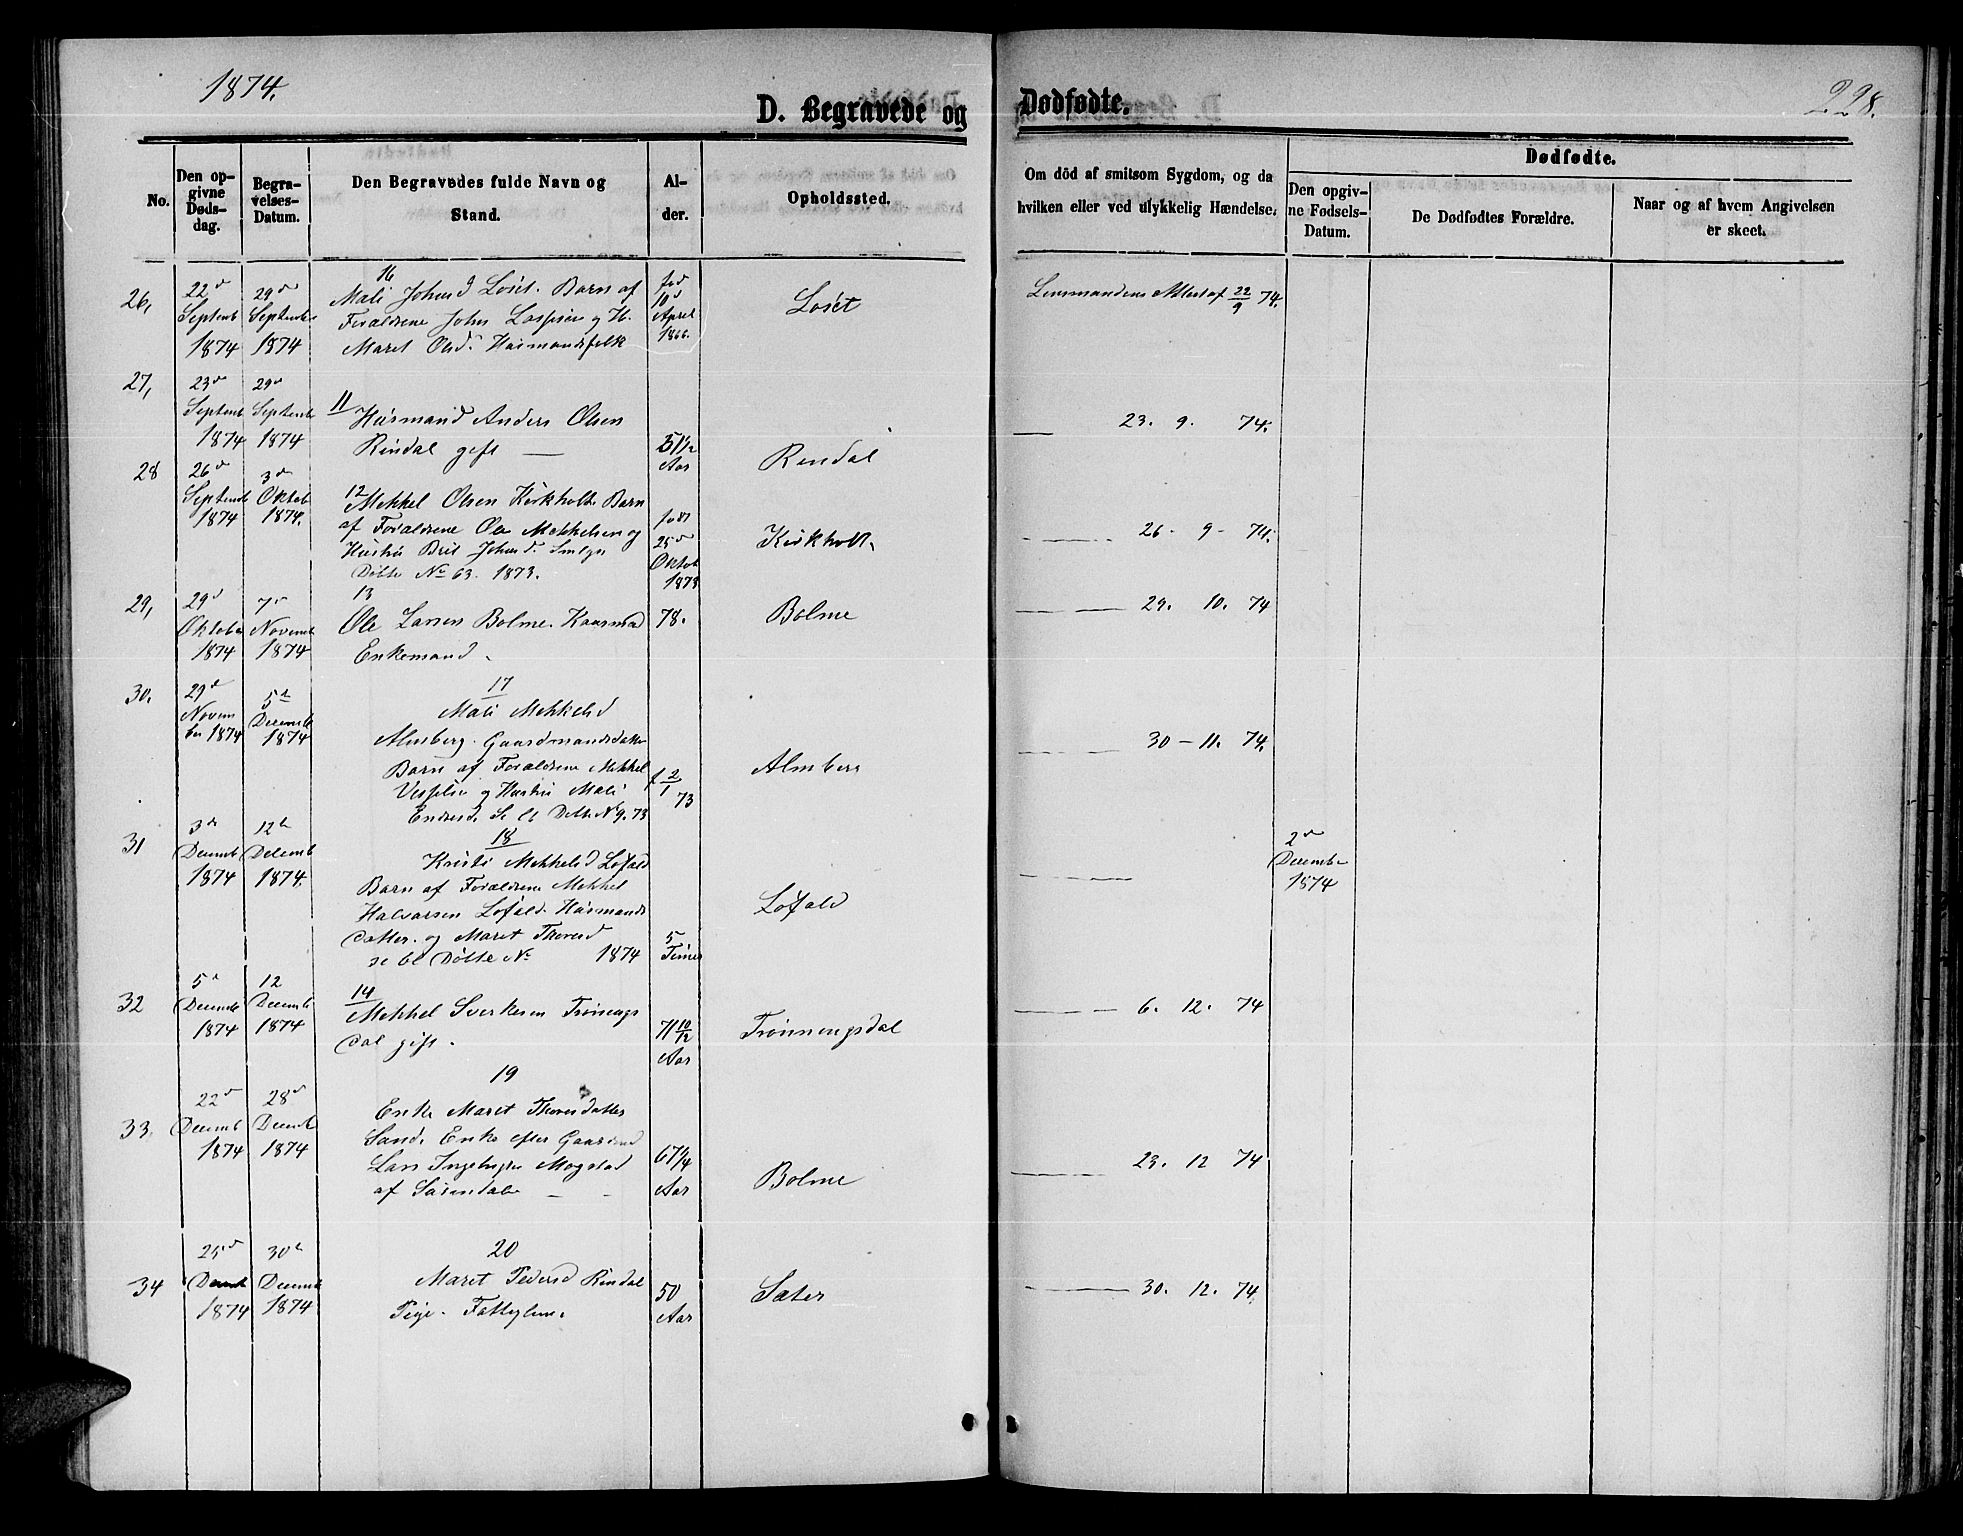 1874.
228.
D. Begravede og Dødfødte.
No.
Den op-
givne
Døds-
dag.
Begra-
velses-
Datum.
Den Begravedes fulde Navn og
Stand.
Al-
der.
Opholdssted.
Om död af smitsom Sygdom, og da
hvilken eller ved ulykkelig Hændelse.
Dødfødte.
Den opgiv-
ne Fødsels-
Datum.
De Dødfødtes Forældre.
Naar og af hvem Angivelsen
er skeet.
26,
22d
Septemb
1874
29d
Septemb
1874
16
Mali Johnsd Løset. Barn af
Forældrene John
Maret Olsd. Husmandsfolk
fød
10d
April
1866.
Løset
Lensmandens Attest af 22/9 74.
27,
23d
Septemb
1874
29d
Septemb
1874
11
Husmand Anders Olsen
Rindal gift —
51 1/2
Aar
Rindal
— 23. 9. 74.
28
26d
Septemb
1874
3d
Oktob
1874.
12
Mekkel Olsen Kirkholt. Barn
af Forældrene Ole Mekkelsen og
Hustru Brit Johnsd.
Døbte No 63. 1873.
født
25d
Oktob
1873
Kirkholt.
— 26 - 9 - 74.
29,
29d
Oktober
1874
7d
Novemb
1874
13
Ole Larsen Bolme. Kaarmd
Enkemand.
78.
Bolme
— 29. 10. 74
30.
29d
Novem
ber 1874
5d
Decemb
1874
17
Mali Mekkelsd
Almberg. Gaardmandsdatter
Barn af Forældrene Mekkel
og Hustru Mali
Endresd. Døbte No 9. 73
f 2/1 73
Almberg
— 30 - 11. 74.
31
3d
Decemb
1874
12d
Decemb
1874.
18
Kristi Mekkelsd Løfald
Barn af Forældrene Mekkel
Halvorsen Løfald. Husmands
datter. og Maret Thoresd
Døbte No 1874
5
Timer
Løfald
—
2d
Decembr
1874
32
5d
Decemb
1874
12
Decemb
1874
14
Mekkel Sverkesen Trønnengs
dal gift.
71 10/12
Aar
Trønnengsdal
— 6. 12. 74
33.
22d
Decemb
1874
28d
Decemb
1874
19
Enke Maret Thoresdatter
Sand. Enke efter Gaardmd
Lars Mogstad
af Surendalen —
67 1/4
Aar
Bolme
— 23. 12 74
34
25d
Decemb
1874
30d
Decemb
1874
20
Maret Pedersd Rindal
Pige. Fattiglem.
50
Aar
Sæter
— 30. 12. 74.